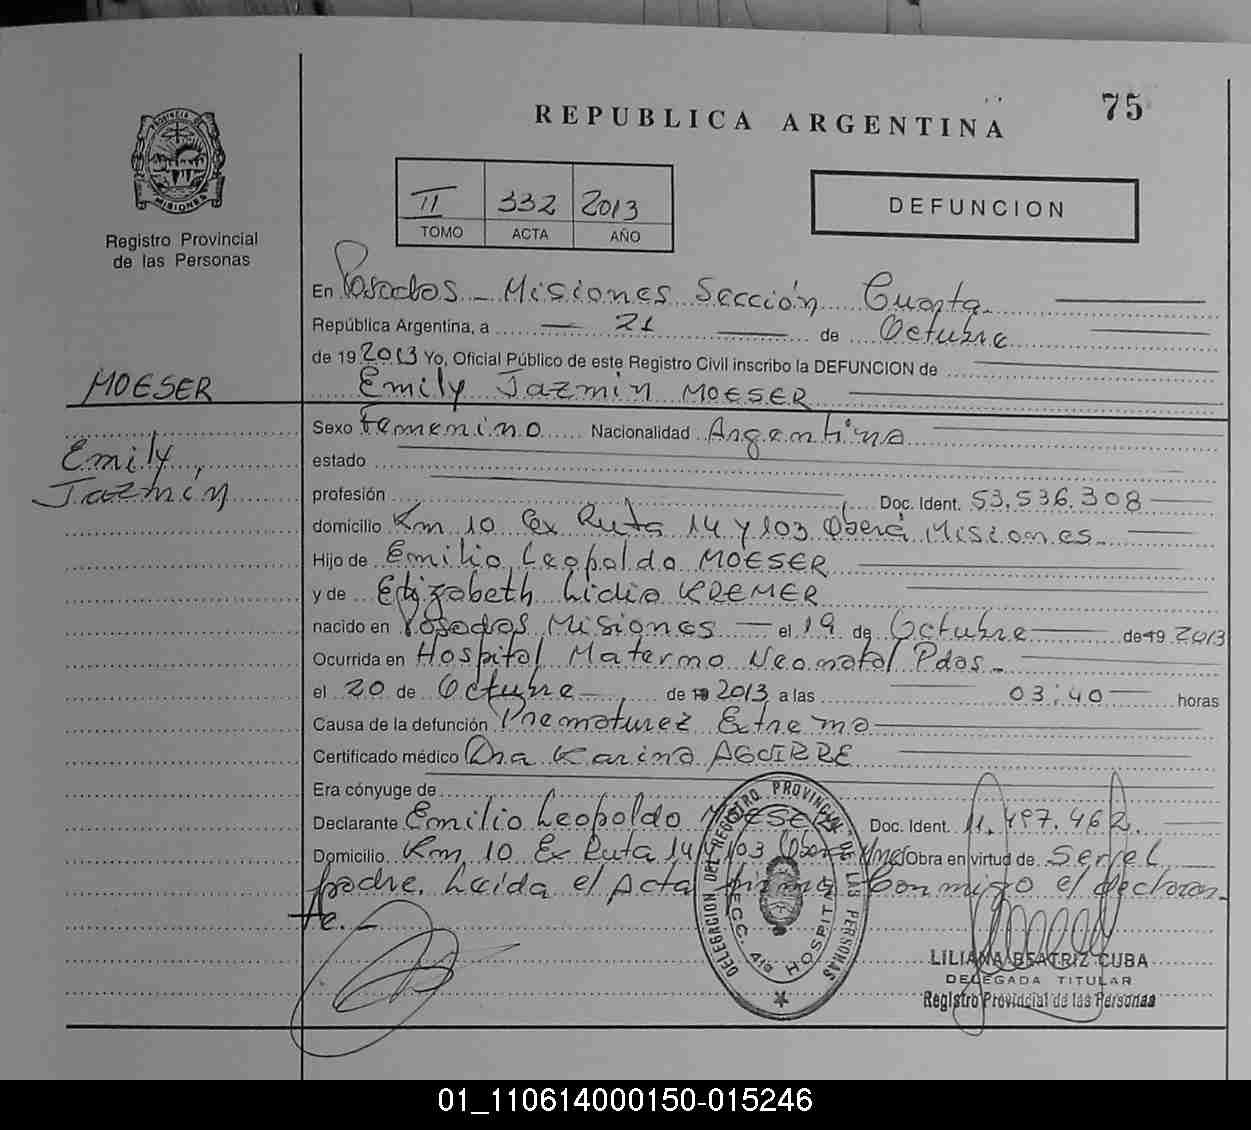 75
REPUBLICA ARGENTINA
PROVINCIA DE
MISIONES
Registro Provincial
de las Personas
II 332 2013
TOMO ACTA AÑO
DEFUNCION
En Posadas - Misiones Sección Cuarta
República Argentina, a 21 de Octubre
de 19 2013 Yo, Oficial Público de este Registro Civil inscribo la DEFUNCION de
MOESER
Emily Jazmín MOESER
Emily,
Jazmín
Sexo Femenino Nacionalidad Argentina
estado
profesión Doc. Ident. 53.536.308
domicilio Km 10 Ex Ruta 14 y 103 Oberá Misiones
Hijo de Emilio Leopoldo MOESER
y de Elizabeth Lidia KREMER
nacido en Posadas Misiones el 19 de Octubre de 19 2013
Ocurrida en Hospital Materno Neonatal Pdas -
el 20 de Octubre de 19 2013 a las 03:40 horas
Causa de la defunción Prematurez Extrema
Certificado médico Dra Karina AGUIRRE
Era cónyuge de
Declarante Emilio Leopoldo MOESER Doc. Ident. 11.497.462
Domicilio Km 10 Ex Ruta 14 y 103 Oberá Mnes Obra en virtud de Ser el
padre. Leída el Acta firma conmigo el declaran-
te. -
DELEGACION DEL REGISTRO PROVINCIAL DE LAS PERSONAS
SECC. 4ta HOSPITAL
LILIANA BEATRIZ CUBA
DELEGADA TITULAR
Registro Provincial de las Personas
01_110614000150-015246